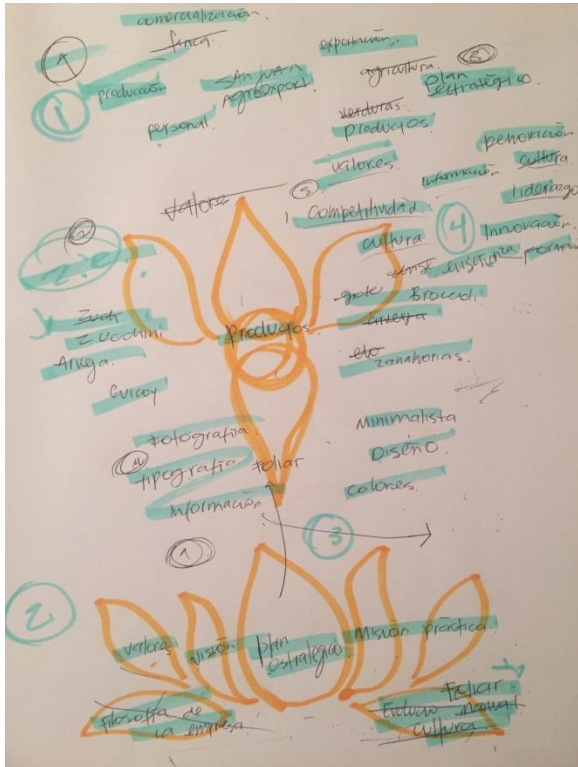 comercialización.
finca.
exportación.
A
1
producción
SAN JUAN
Agroexport
agricultura.
Plan
estratégico
personal.
verduras.
productos.
valores.
información
cultura
liderazgo
valores
5
Competitividad.
cultura
4
Innovación.
enseñanza
Brocooli.
productos.
Zucchini.
zanahorias.
Arveja.
Guicoy
Fotografía.
Minimalista
tipografía.
foliar
Diseño
Información
Colores.
1
3
2
valores
Visión
plan
estratégico
Misión práctica
Filosofía de
la empresa
Foliar
manual
cultura